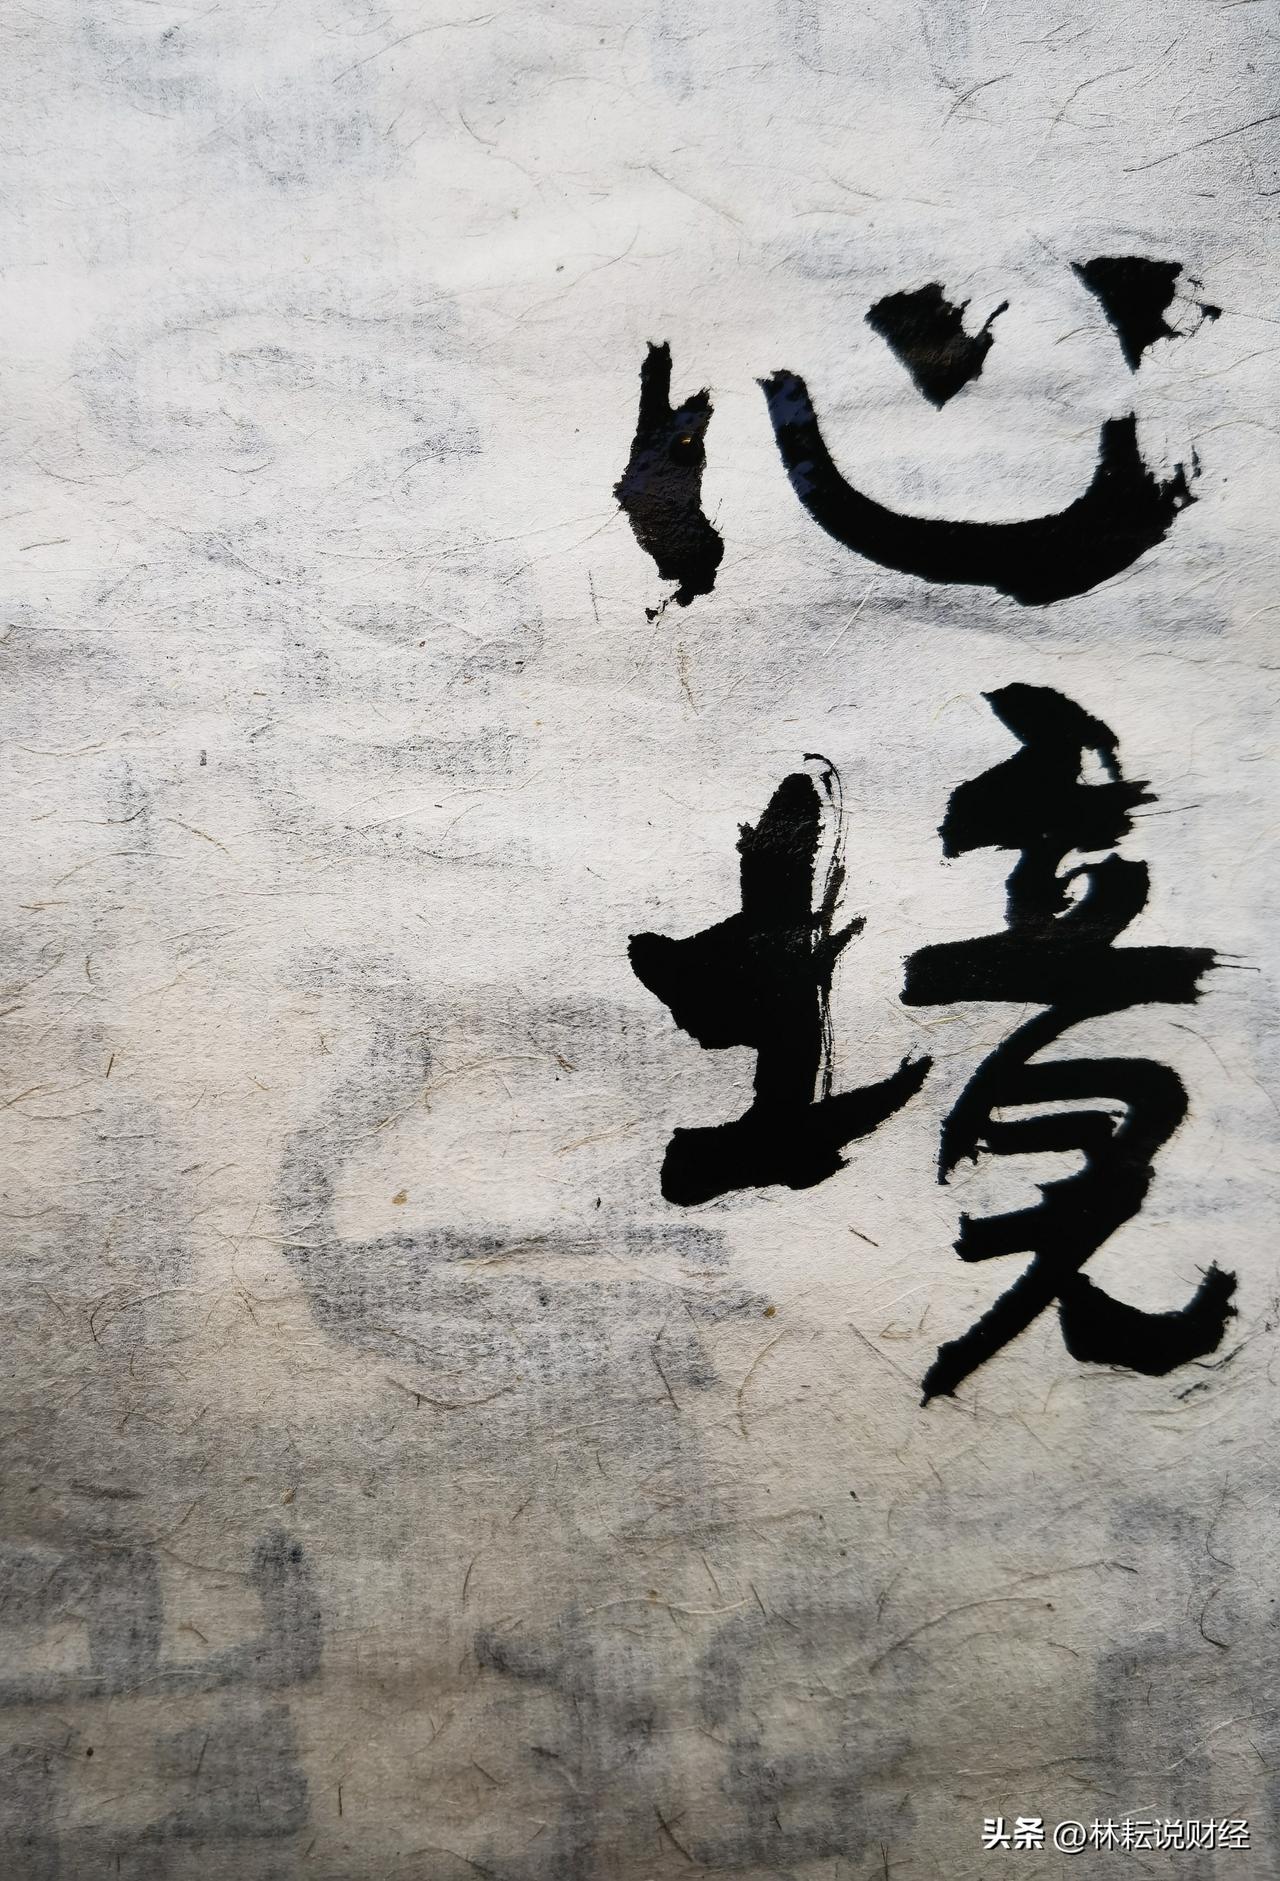 心
境
头条 @林耘说财经